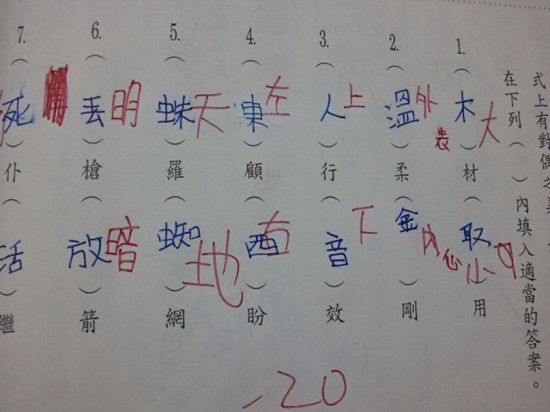 式上有對偶之
在下列（　）內填入適當的答案。
1.（木）材（取）用
大
小
2.（溫）柔（金）剛
外表
內心
3.（人）行（音）效
上
下
4.（東）顧（西）盼
左
右
5.（蛛）羅（蜘）網
天
地
6.（丟）槍（放）箭
明
暗
7.（死）仆（活）繼
-20